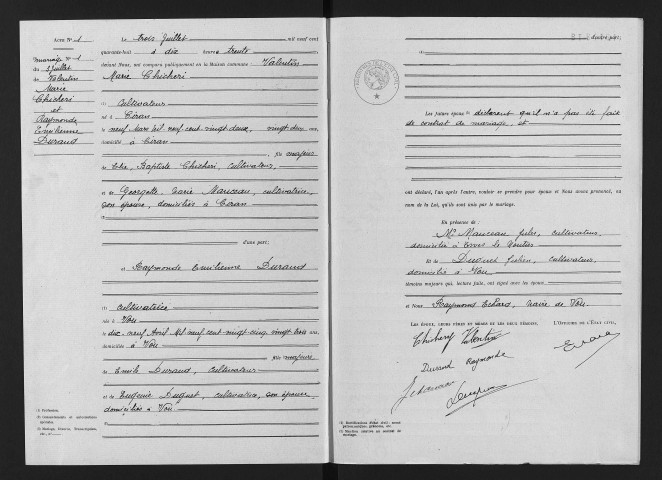 ACTE N° 1
mariage N° 1
du 3 juillet
de Valentin
Marie
Chicheri
et
Raymonde
Emilienne
Durand
Le trois juillet mil neuf cent
quarante-huit à dix heures trente
devant Nous, ont comparu publiquement en la Maison commune Valentin
Marie Chicheri
(1) cultivateur
né à Céran
le neuf Mars mil neuf cent vingt deux, vingt ans,
domicilié à Céran
fils majeur
de Elie, Baptiste Chicheri, cultivateur,
et de Georgette Marie Manceau, cultivatrice,
son épouse, domiciliés à Céran
d'une part;
et Raymonde Emilienne Durand
(1) cultivatrice
née à Vou
le dix-neuf Avril Mil neuf cent vingt cinq vingt trois ans,
domiciliée à Vou
fille majeure
de Emile Durand, cultivateur
et de Eugénie Duquet, cultivatrice, son épouse,
domiciliés à Vou
(1) Profession.
d'autre part;
(2)
Les futurs époux (3) déclarent qu'il n'a pas été fait
de contrat de mariage, et
ont déclaré, l'un après l'autre, vouloir se prendre pour époux et Nous avons prononcé, au
nom de la Loi, qu'ils sont unis par le mariage.
En présence de :
Mr Manceau Jules, cultivateur,
domicilié à
Et de cultivateur,
domicilié à Vou
témoins majeurs qui, lecture faite, ont signé avec les époux
et Nous Raymond Echard, maire de Vou.
LES ÉPOUX, LEURS PÈRES ET MÈRES ET LES DEUX TÉMOINS, L'OFFICIER DE L'ÉTAT CIVIL,
Chicheri Valentin
Durand Raymonde